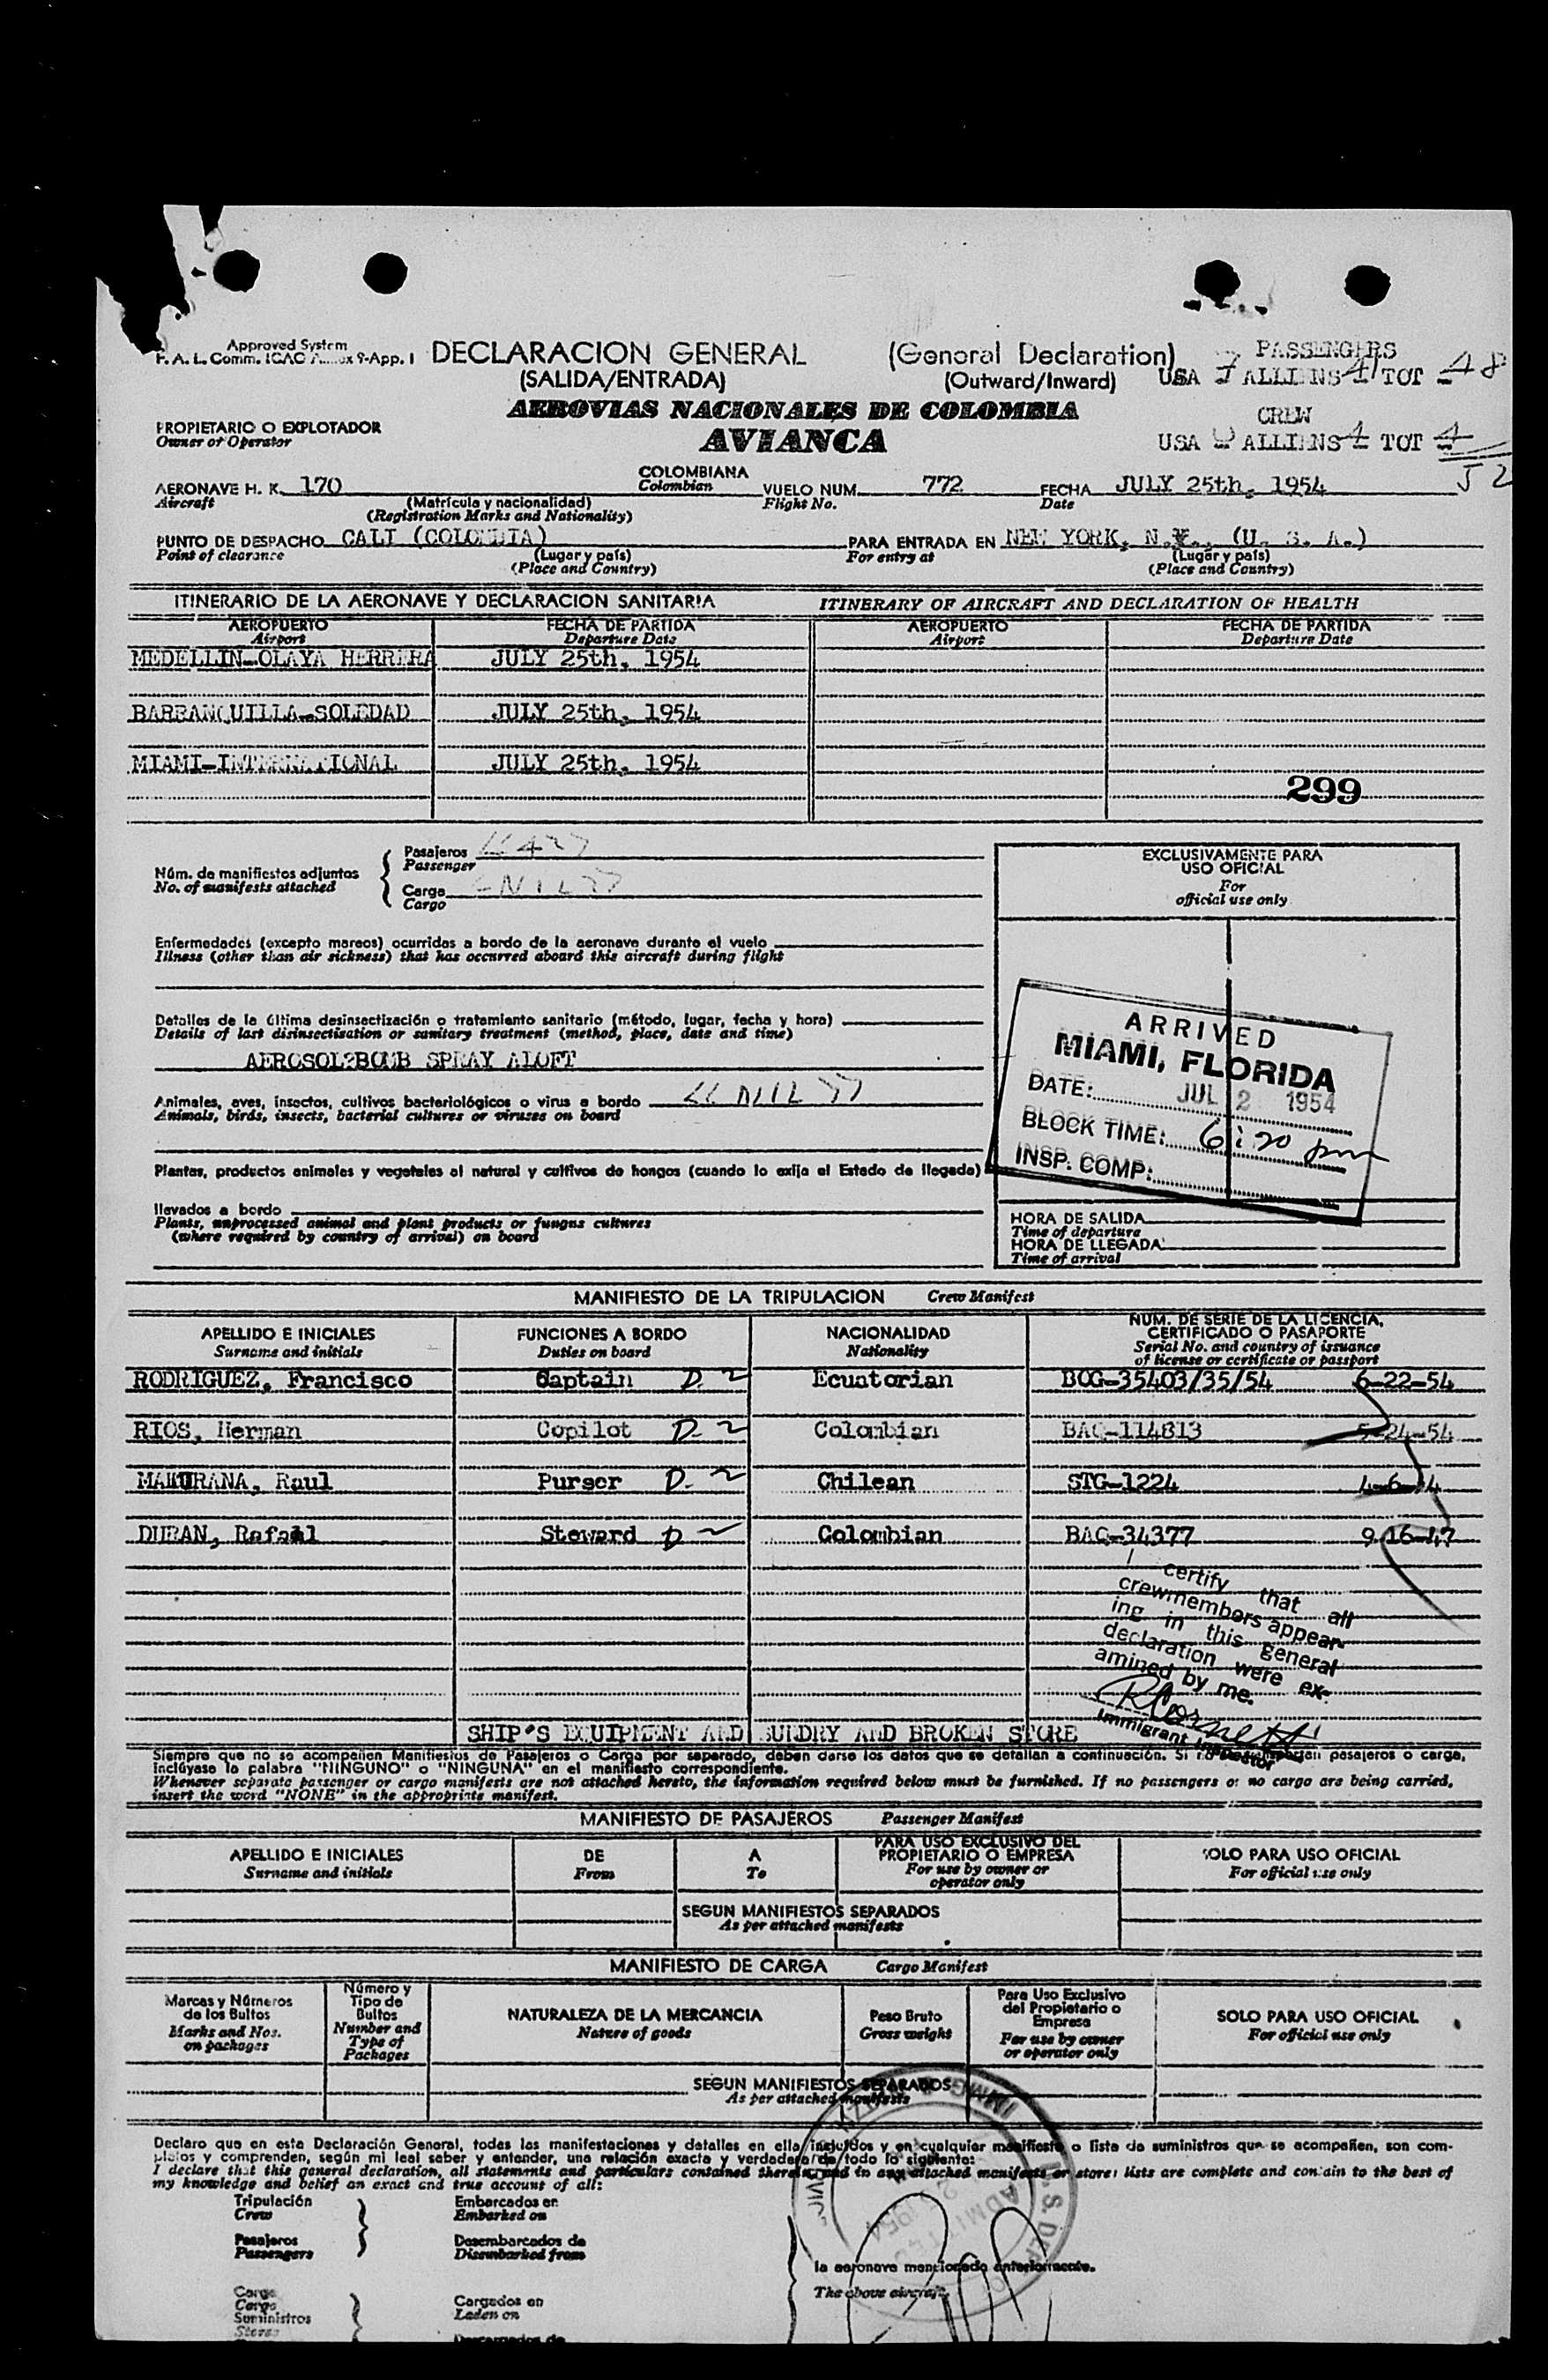 Approved System
F. A. L. Comm. ICAO Annex 9-App. I
DECLARACION GENERAL (General Declaration)
(SALIDA/ENTRADA) (Outward/Inward)
PASSENGERS
USA 7 ALLIENS 41 TOT 48
AEROVIAS NACIONALES DE COLOMBIA
AVIANCA
CREW
USA 0 ALLIENS 4 TOT 4
52
PROPIETARIO O EXPLOTADOR
Owner or Operator
AERONAVE H. K. 170 COLOMBIANA VUELO NUM. 772 FECHA JULY 25th, 1954
Aircraft (Matrícula y nacionalidad) Colombian Flight No. Date
(Registration Marks and Nationality)
PUNTO DE DESPACHO CALI (COLOMBIA) PARA ENTRADA EN NEW YORK, N.Y., (U. S. A.)
Point of clearance (Lugar y país) For entry at (Lugar y país)
(Place and Country) (Place and Country)
ITINERARIO DE LA AERONAVE Y DECLARACION SANITARIA ITINERARY OF AIRCRAFT AND DECLARATION OF HEALTH
AEROPUERTO FECHA DE PARTIDA AEROPUERTO FECHA DE PARTIDA
Airport Departure Date Airport Departure Date
MEDELLIN-OLAYA HERRERA JULY 25th, 1954
BARRANQUILLA-SOLEDAD JULY 25th, 1954
MIAMI-INTERNATIONAL JULY 25th, 1954
299
Núm. de manifiestos adjuntos
No. of manifests attached
Pasajeros "4"
Passenger
Carga "NIL"
Cargo
EXCLUSIVAMENTE PARA
USO OFICIAL
For
official use only
Enfermedades (excepto mareos) ocurridas a bordo de la aeronave durante el vuelo
Illness (other than air sickness) that has occurred aboard this aircraft during flight
Detalles de la última desinsectización o tratamiento sanitario (método, lugar, fecha y hora)
Details of last disinsectization or sanitary treatment (method, place, date and time)
AEROSOL?BOMB SPRAY ALOFT
Animales, aves, insectos, cultivos bacteriológicos o virus a bordo "NIL"
Animals, birds, insects, bacterial cultures or viruses on board
Plantas, productos animales y vegetales al natural y cultivos de hongos (cuando lo exija el Estado de llegada)
llevados a bordo
Plants, unprocessed animal and plant products or fungus cultures
(where required by country of arrival) on board
ARRIVED
MIAMI, FLORIDA
DATE: JUL 2 1954
BLOCK TIME: 6:20 pm
INSP. COMP:
HORA DE SALIDA
Time of departure
HORA DE LLEGADA
Time of arrival
MANIFIESTO DE LA TRIPULACION Crew Manifest
APELLIDO E INICIALES FUNCIONES A BORDO NACIONALIDAD NUM. DE SERIE DE LA LICENCIA, CERTIFICADO O PASAPORTE
Surname and initials Duties on board Nationality Serial No. and country of issuance of license or certificate or passport
RODRIGUEZ, Francisco Captain D-2 Ecuatorian BOG-35403/35/54 6-22-54
RIOS, Herman Copilot D-2 Colombian BAQ-114813 5-24-54
MATURANA, Raul Purser D-2 Chilean STG-1224
DURAN, Rafael Steward D-2 Colombian BAQ-34377 9-16-47
I certify that all
crewmembers appear-
ing in this general
declaration were ex-
amined by me.
Immigrant Inspector
SHIP'S EQUIPMENT AND SUNDRY AND BROKEN STORE
Siempre que no se acompañen Manifiestos de Pasajeros o Carga por separado, deben darse los datos que se detallan a continuación. Si no pasajeros o carga,
inclúyase la palabra "NINGUNO" o "NINGUNA" en el manifiesto correspondiente.
Whenever separate passenger or cargo manifests are not attached hereto, the information required below must be furnished. If no passengers or no cargo are being carried,
insert the word "NONE" in the appropriate manifest.
MANIFIESTO DE PASAJEROS Passenger Manifest
APELLIDO E INICIALES DE A PARA USO EXCLUSIVO DEL PROPIETARIO O EMPRESA SOLO PARA USO OFICIAL
Surname and initials From To For use by owner or operator only For official use only
SEGUN MANIFIESTOS SEPARADOS
As per attached manifests
MANIFIESTO DE CARGA Cargo Manifest
Marcas y Números de los Bultos Número y Tipo de Bultos NATURALEZA DE LA MERCANCIA Peso Bruto Para Uso Exclusivo del Propietario o Empresa SOLO PARA USO OFICIAL
Marks and Nos. on packages Number and Type of Packages Nature of goods Gross weight For use by owner or operator only For official use only
SEGUN MANIFIESTOS SEPARADOS
As per attached manifests
Declaro que en esta Declaración General, todas las manifestaciones y detalles en ella incluídos y en cualquier manifiesto o lista de suministros que se acompañen, son com-
pletos y comprenden, según mi leal saber y entender, una relación exacta y verdadera de todo lo siguiente:
I declare that this general declaration, all statements and particulars contained therein, and in any attached manifests or stores lists are complete and contain to the best of
my knowledge and belief an exact and true account of all:
Tripulación Embarcados en
Crew Embarked on
Pasajeros Desembarcados de
Passengers Disembarked from
la aeronave mencionada anteriormente.
The above aircraft.
Carga
Cargo Cargados en
Suministros Laden on
Stores